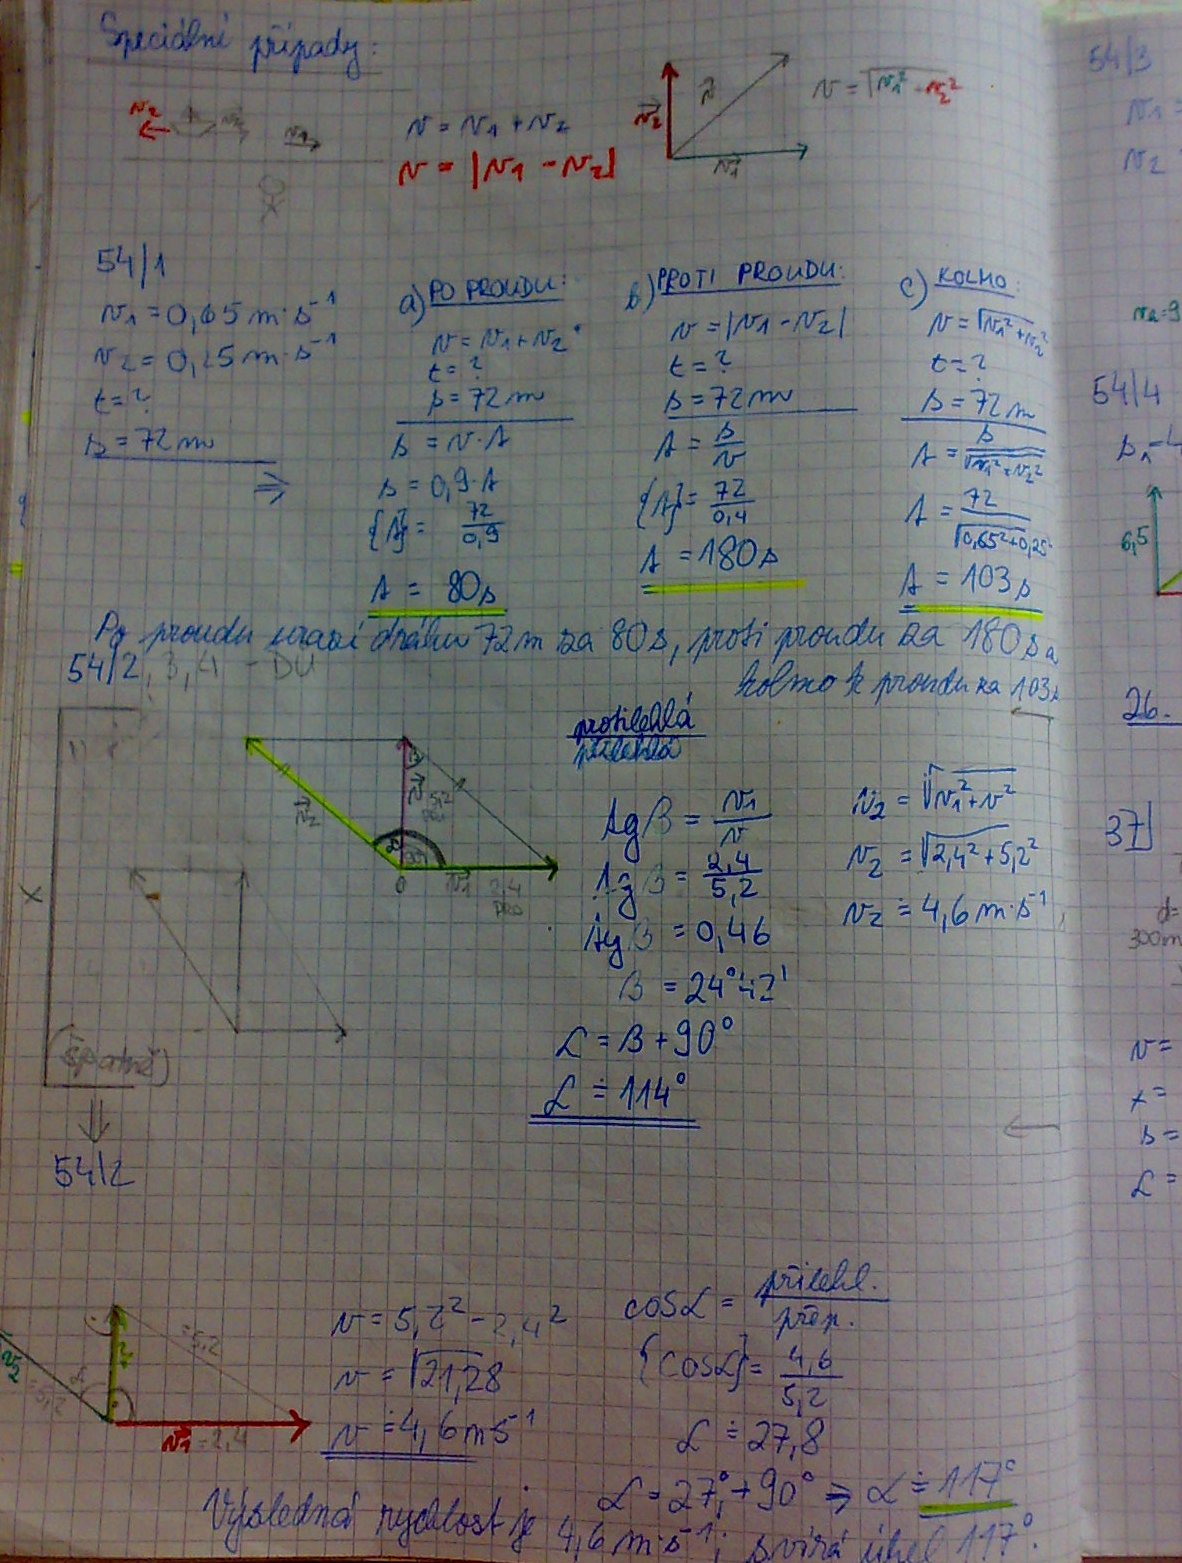 Speciální případy:
v₂
v₁
v = v₁ + v₂
v = |v₁ - v₂|
v₂
v
v₁
v = √v₁² - v₂²
54/1
v₁ = 0,65 m·s⁻¹
v₂ = 0,25 m·s⁻¹
t = ?
s = 72 m
⇒
a) PO PROUDU:
v = v₁ + v₂
t = ?
s = 72 m
s = v·t
s = 0,9·t
{t} = 72/0,9
t = 80 s
b) PROTI PROUDU:
v = |v₁ - v₂|
t = ?
s = 72 m
t = s/v
{t} = 72/0,4
t = 180 s
c) KOLMO:
v = √v₁² + v₂²
t = ?
s = 72 m
t = s/√v₁² + v₂²
t = 72/√0,65² + 0,25²
t = 103 s
Po proudu urazí dráhu 72 m za 80 s, proti proudu za 180 s a
kolmo k proudu za 103 s
54/2, 3, 4 - DÚ
x
(špatně)
v₂
v
5,2
0
v₁
2,4
protilehlá
přilehlá
tg β = v₁/v
tg β = 2,4/5,2
tg β = 0,46
β = 24°42'
α = β + 90°
α ≐ 114°
v₂ = √v₁² + v²
v₂ = √2,4² + 5,2²
v₂ ≐ 4,6 m·s⁻¹
54/2
v₂
= 5,2
α
v
= 5,2
v₁ = 2,4
v = 5,2² - 2,4²
v = √21,28
v ≐ 4,6 m s⁻¹
cos α = přilehl./přep.
{cos α} = 4,6/5,2
α ≐ 27,8
α = 27° + 90° ⇒ α ≐ 117°
Výsledná rychlost je 4,6 m·s⁻¹; svírá úhel 117°.
54/3
v₁ =
v₂
54/4
6,5
26.
37
d =
300m
v =
s =
α =